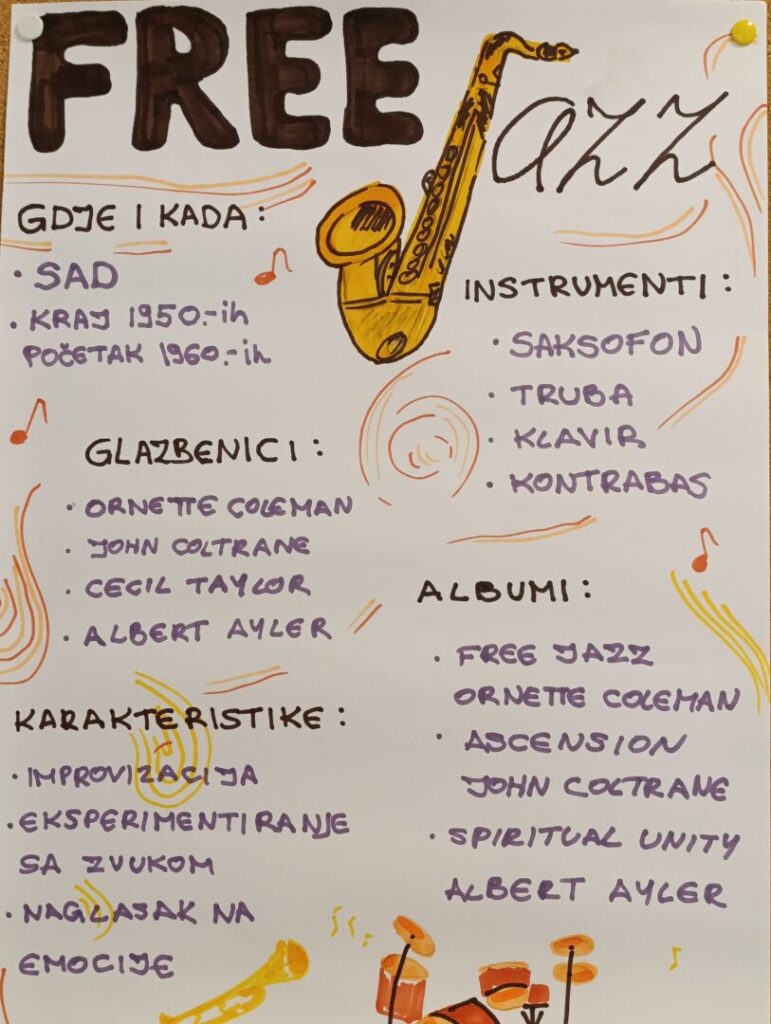 FREE Jazz
GDJE I KADA:
• SAD
• KRAJ 1950.-ih
POČETAK 1960.-ih
INSTRUMENTI:
• SAKSOFON
• TRUBA
• KLAVIR
• KONTRABAS
GLAZBENICI:
• ORNETTE COLEMAN
• JOHN COLTRANE
• CECIL TAYLOR
• ALBERT AYLER
ALBUMI:
• FREE JAZZ
ORNETTE COLEMAN
• ASCENSION
JOHN COLTRANE
• SPIRITUAL UNITY
ALBERT AYLER
KARAKTERISTIKE:
• IMPROVIZACIJA
• EKSPERIMENTIRANJE
SA ZVUKOM
• NAGLASAK NA
EMOCIJE